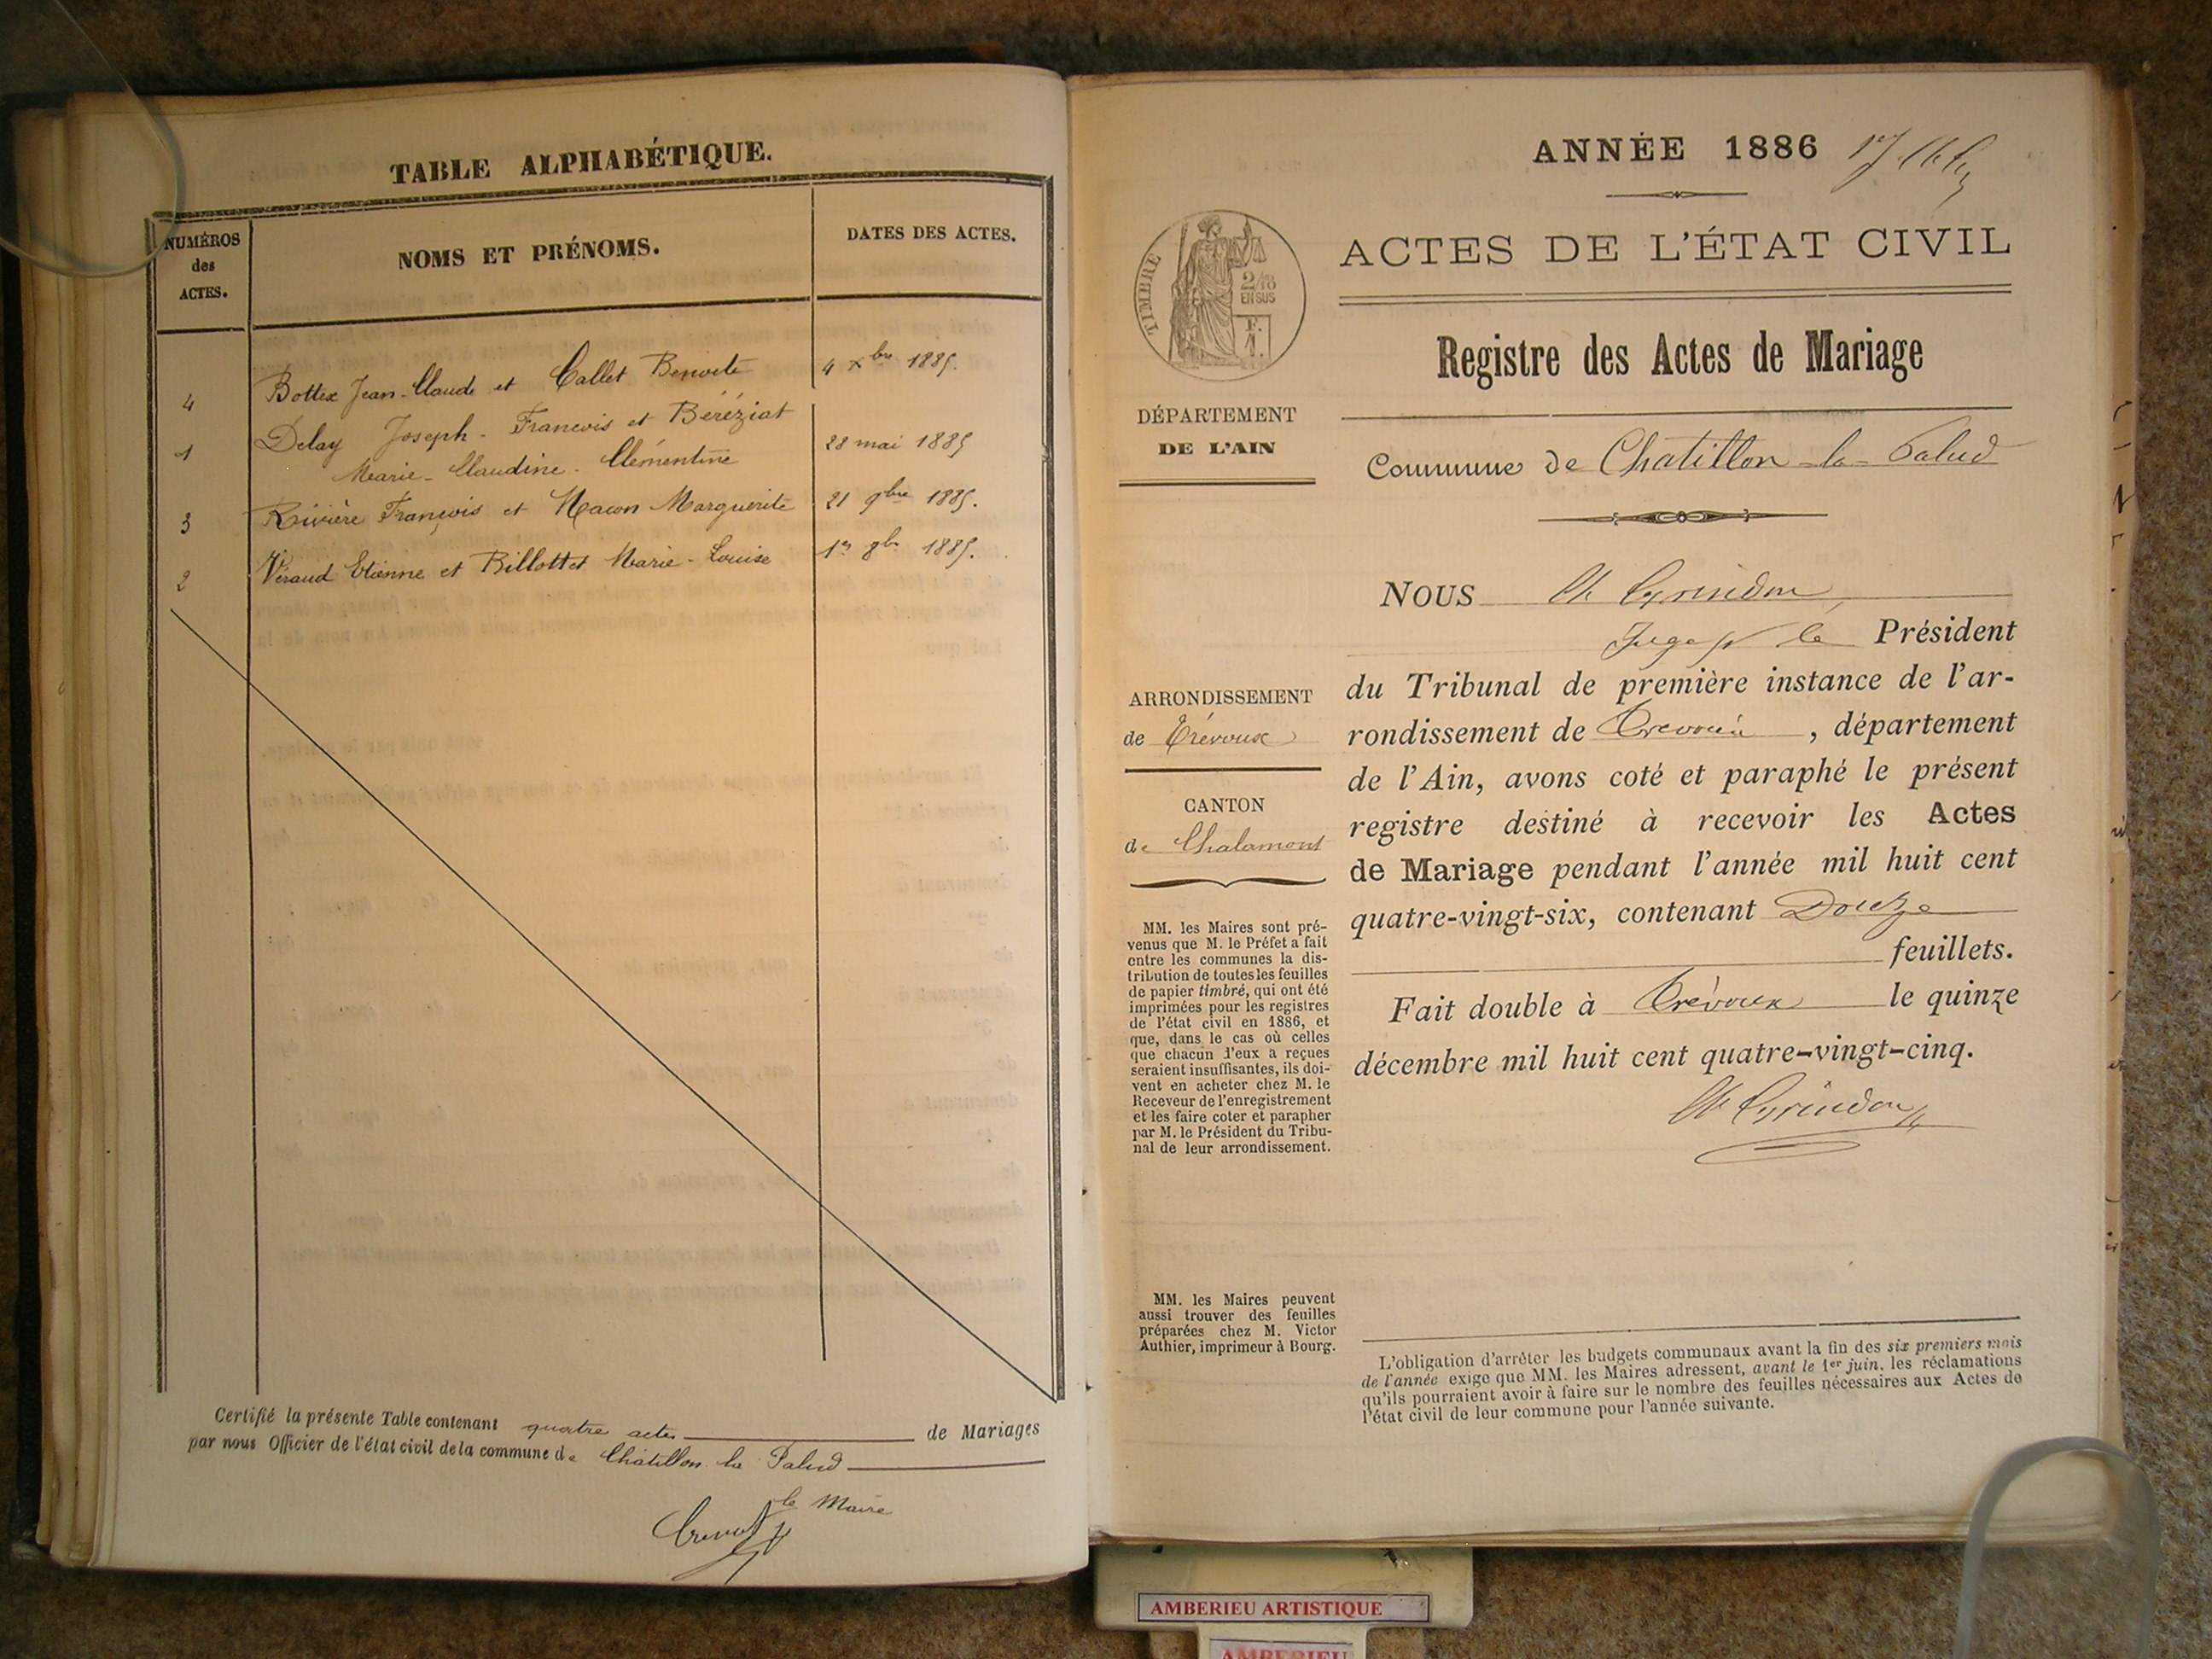 TABLE ALPHABÉTIQUE.
NUMÉROS
des
ACTES.
NOMS ET PRÉNOMS.
DATES DES ACTES.
4 Bottex Jean-Claude et Callet Benoite 4 xbre 1885.
1 Delay Joseph-François et Béréziat
Marie-Claudine-Clémentine 28 mai 1885
3 Rivière François et Macon Marguerite 21 9bre 1885.
2 Véraud Etienne et Billottet Marie-Louise 1er 8bre 1885.
Certifié la présente Table contenant quatre actes de Mariages
par nous Officier de l'état civil de la commune de Châtillon la Palud
le Maire
ANNÉE 1886
TIMBRE
2/10
EN SUS
F.
1.
ACTES DE L'ÉTAT CIVIL
Registre des Actes de Mariage
DÉPARTEMENT
DE L'AIN
Commune de Chatillon-la-Palud
NOUS
Juge pr le Président
du Tribunal de première instance de l'ar-
rondissement de Trévoux, département
de l'Ain, avons coté et paraphé le présent
registre destiné à recevoir les Actes
de Mariage pendant l'année mil huit cent
quatre-vingt-six, contenant Douze
feuillets.
Fait double à Trévoux le quinze
décembre mil huit cent quatre-vingt-cinq.
ARRONDISSEMENT
de Trévoux
CANTON
de Chalamont
MM. les Maires sont pré-
venus que M. le Préfet a fait
entre les communes la dis-
tribution de toutes les feuilles
de papier timbré, qui ont été
imprimées pour les registres
de l'état civil en 1886, et
que, dans le cas où celles
que chacun d'eux a reçues
seraient insuffisantes, ils doi-
vent en acheter chez M. le
Receveur de l'enregistrement
et les faire coter et parapher
par M. le Président du Tribu-
nal de leur arrondissement.
MM. les Maires peuvent
aussi trouver des feuilles
préparées chez M. Victor
Authier, imprimeur à Bourg.
L'obligation d'arrêter les budgets communaux avant la fin des six premiers mois
de l'année exige que MM. les Maires adressent, avant le 1er juin, les réclamations
qu'ils pourraient avoir à faire sur le nombre des feuilles nécessaires aux Actes de
l'état civil de leur commune pour l'année suivante.
AMBERIEU ARTISTIQUE
AMBERIEU